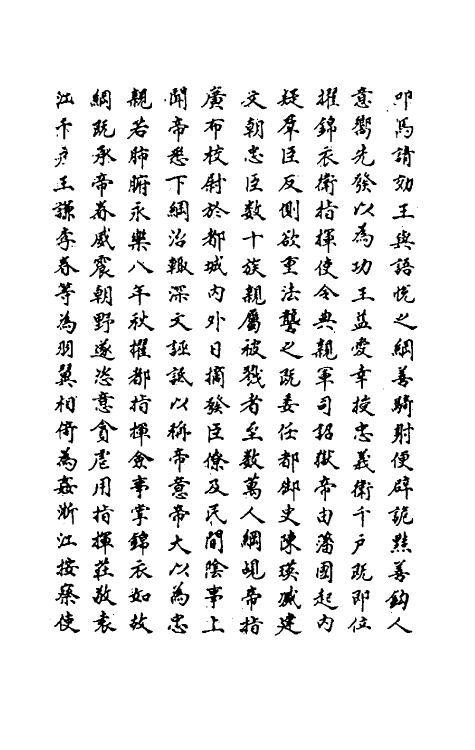 叩馬請効王與語悅之綱善騎射便辟詭黠善鈎人
意嚮先發以為功王益愛幸授忠義衛千戶既即位
擢錦衣衛指揮使令典親軍司詔獄帝由藩國起內
疑羣臣反側欲重法讋之既委任都御史陳瑛滅建
文朝忠臣數十族親屬被戮者至數萬人綱覘帝指
廣布校尉於都城內外日摘發臣僚及民間陰事上
聞帝悉下綱治輒深文誣詆以稱帝意帝大以為忠
親若肺腑永樂八年秋擢都指揮僉事掌錦衣如故
綱既承帝眷威震朝野遂恣意貪虐用指揮莊敬袁
江千戶王謙李春等為羽翼相倚為姦浙江按察使